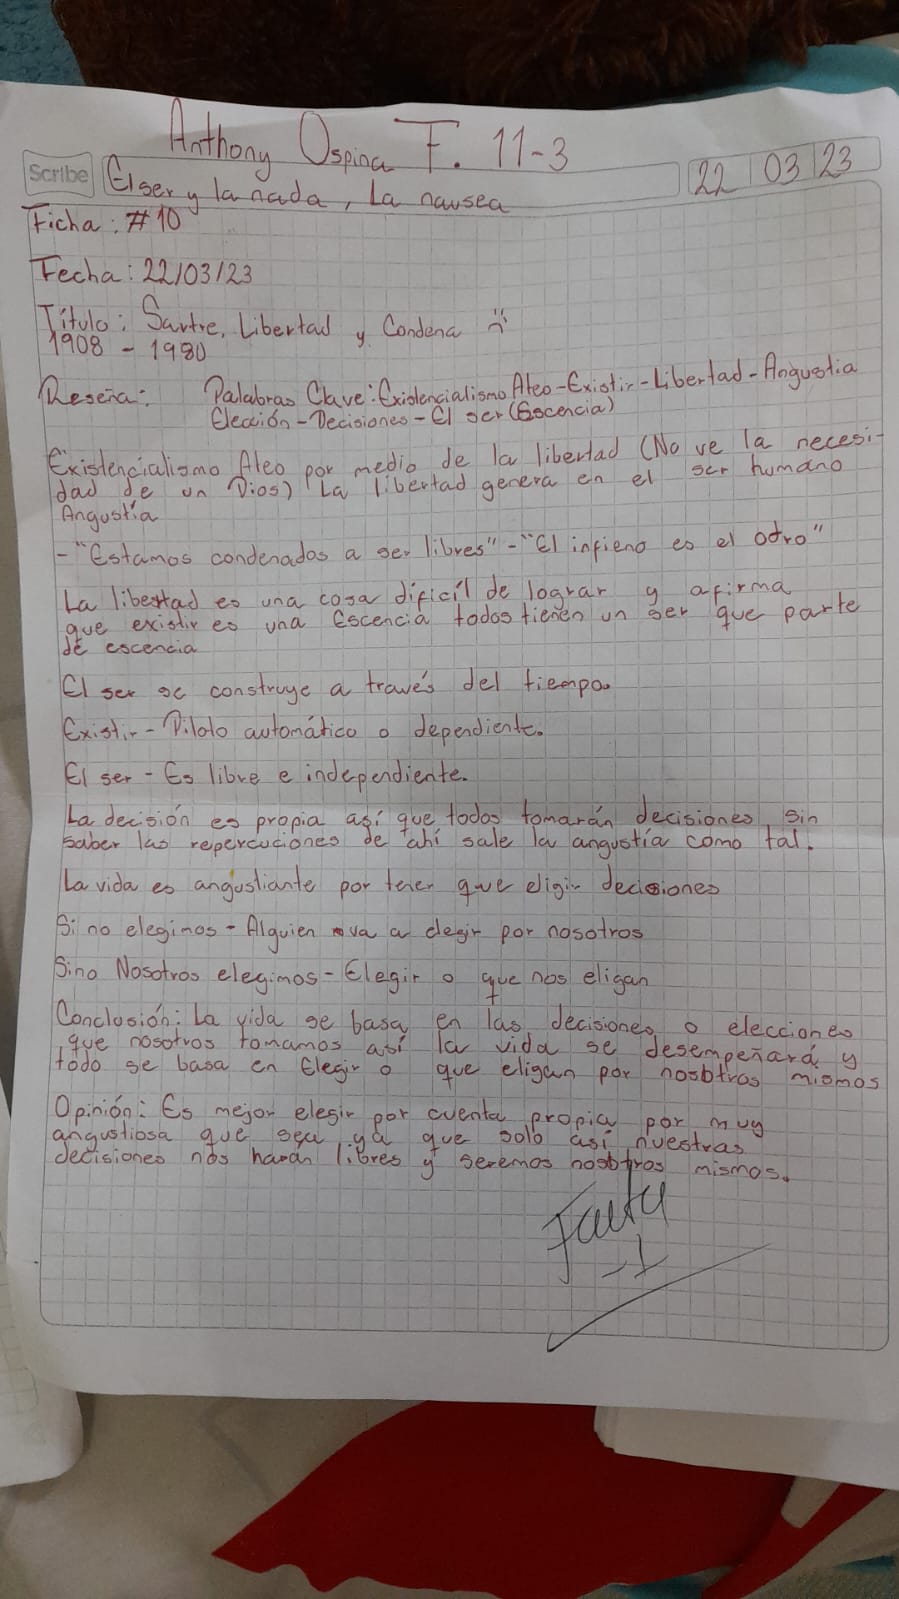 Anthony Ospina F. 11-3
Scribe
El ser y la nada, La nausea
22 03 23
Ficha: #10
Fecha: 22/03/23
Título: Sartre, Libertad y Condena
1908 - 1980
Reseña: Palabras Clave: Existencialismo Ateo-Existir-Libertad-Angustia
Elección-Decisiones-El ser (Escencia)
Existencialismo Ateo por medio de la libertad (No ve la necesi-
dad de un Dios) La libertad genera en el ser humano
Angustía
-"Estamos condenados a ser libres"-"El infieno es el otro"
La libertad es una cosa dificíl de lograr y afirma
que existir es una Escencia todos tienen un ser que parte
de escencia
El ser se construye a través del tiempo.
Existir - Piloto automático o dependiente.
El ser - Es libre e independiente.
La decisión es propia así que todos tomarán decisiones sin
saber las repercuciones de ahí sale la angustía como tal.
La vida es angustiante por tener que eligir decisiones
Si no elegimos - Alguien va a elegir por nosotros
Sino Nosotros elegimos - Elegir o que nos eligan
Conclusión: La vida se basa en las decisiones o elecciones
que nosotros tomamos así la vida se desempeñará y
todo se basa en Elegir o que eligan por nosotros mismos
Opinión: Es mejor elegir por cuenta propia por muy
angustiosa que sea ya que solo así nuestras
decisiones nos harán libres y seremos nosotros mismos.